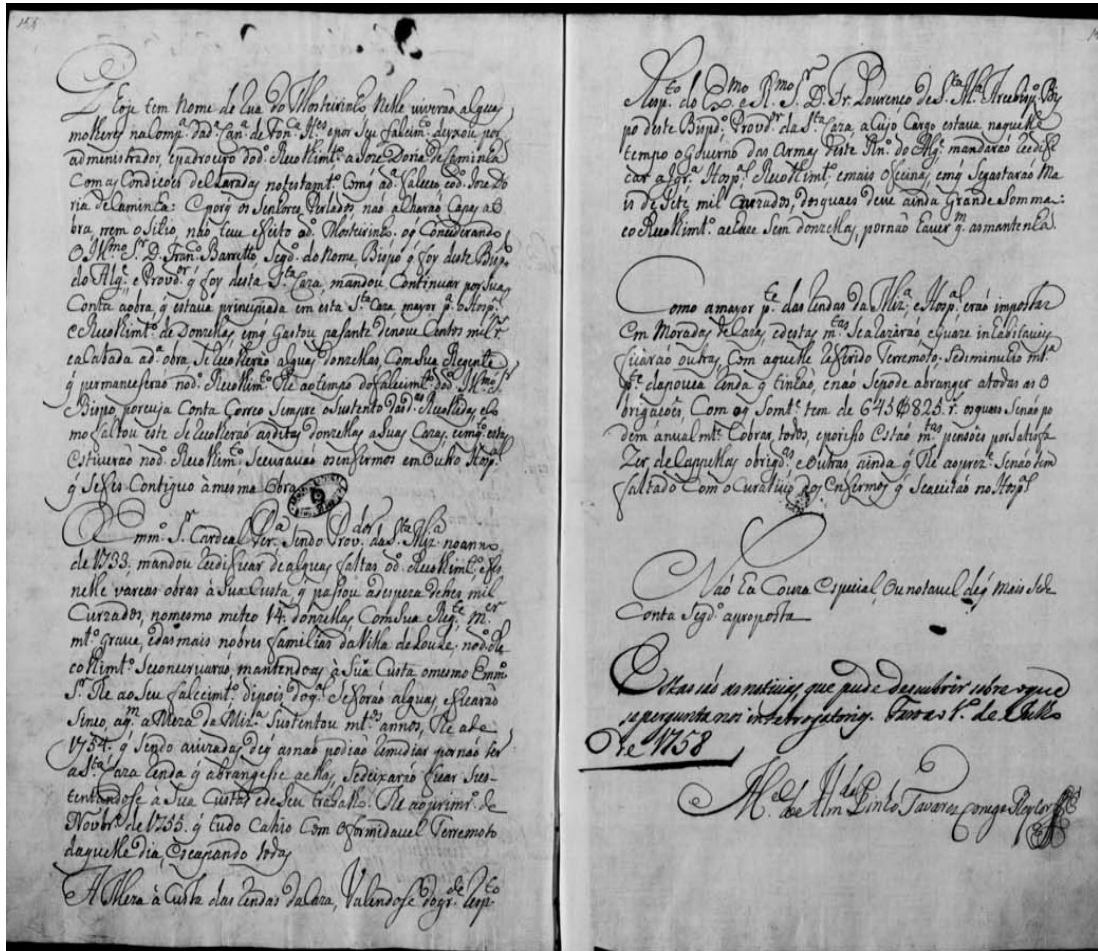 154
Eoje tem nome de Rua do Mosteirinho. Nelle viverão alguãs
molheres na Comp.ª da d.ª Can.ª de Fon.ca Htes e por seu falecim.to deixou por
administrador, e padroeiro do d.º Recolhim.to a Joze Doria de Caminha
Com as Condiçoes declaradas no testam.to Com q̃ a d.ª faleceo e o d.º Joze Do
ria de Caminha: E porq̃ os Senhores Perlados não acharão Capas a o
bra, nem o sitio, não teve efeito o d.º Mosteirinho. o q̃ Considerando
O Ill.mo Sr D. Fran.co Barretto Seg.do do nome, Bispo q̃ foy deste Bisp.do
do Alg.e e Provd.or q̃ foy desta S.ta Caza, mandou Continuar por sua
Conta a obra, q̃ estava principiada em esta S.ta Caza mayor p.ª o Hosp.l
e Recolhim.to de Donzellas, em q̃ Gastou pasante de nove Centos mil r.s
e acabada a d.ª obra se recolherão alguãs donzellas, Com sua Regente
q̃ permaneserão no d.º Recolhim.to the ao tempo do falecim.to do d.º Ill.mo Sr
Bispo por cuja Conta Correo sempre o sustento das d.as Recolhidas, e Co
mo faltou este se recolherão as ditas donzellas a suas Cazas, e em q̃ estas
estiverão no d.º Recolhim.to se curavão os enfermos em outro Hosp.l
q̃ se fes Contiguo à mesma obra
O Emm.º Sr Cardeal Per.ª sendo Prov.dor da S.ta Miz.ª no anno
de 1733. mandou reedificar de alguãs faltas o d.º Recolhim.to e fes
nelle várias obras à sua Custa, q̃ passou a despeza de tres mil
Curzados, no mesmo meteo 14. donzellas Com sua Reg.te M.er
m.to grave, e das mais nobres familias da Villa de Loulé, no d.º Re
colhim.to se conservarão, mantendoas à sua Custa o mesmo Emm.º
Sr the ao seu falecim.to dipois do q.l se forão alguãs, e ficarão
Sinco, a q.m a Meza da Miz.ª sustentou m.tos annos, the a de
1754. q̃ sendo avizadas de q̃ as não podião remediar por não ter
a S.ta Caza renda q̃ abrangese a ellas, se deixarão ficar sus-
tentandose à sua Custa e de seu trabalho. the ao prim.ro de
Novbr.o de 1755. q̃ tudo Cahio Com o formidavel Terremoto
daquelle dia, escapando todas
A Meza à Custa das rendas da Caza, Valendose do gr.de resp.to
Resp.to do Ex.mo e R.mo Sr D. Fr. Lourenço de S.ta M.ª Arcebispo Bis
po deste Bispd.º Provd.or da S.ta Caza, a Cujo Cargo estava naquelle
tempo o Governo das Armas deste Rn.º do Alg.e mandarão reedifi
car a Igr.ª Hosp.l Recolhim.to e mais oficinas, em q̃ se gastarão ma
is de sete mil Curzados, dos quaes deve ainda Grande Somma:
e o Recolhim.to se acha sem donzellas, por não haver q.m as mantenha.
Como a mayor p.te das rendas da Miz.ª e Hosp.l erão impostas
em Moradas de Cazas, e destas m.tas se arazarão e quaze inhabitaveis
ficarão outras, com aquelle referido Terremoto. se diminuhio m.ta
p.te da pouca renda q̃ tinhão, e não se pode abranger a todas as o
brigaçoẽs, Com o q̃ som.te tem de 645$825. r.s os quaes se não po
dem anualm.te Cobrar, todos, e por isso estão m.tas pensoẽs por satisfa
zer, de Cappellas obrigd.as e outras, ainda q̃ the ao prez.e se não tem
faltado Com o Curativo dos Enfermos q̃ se aceitão no Hosp.l
Não ha Couza especial, ou notavel de q̃ mais se dé
Conta Seg.do a proposta
Estas são as noticias, que pude descubrir sobre o que
se pergunta nos interrogatorios. Tavira 1.º de Julho
de 1758
M.el de Alm.da Pinto Tavares Conego Reytor